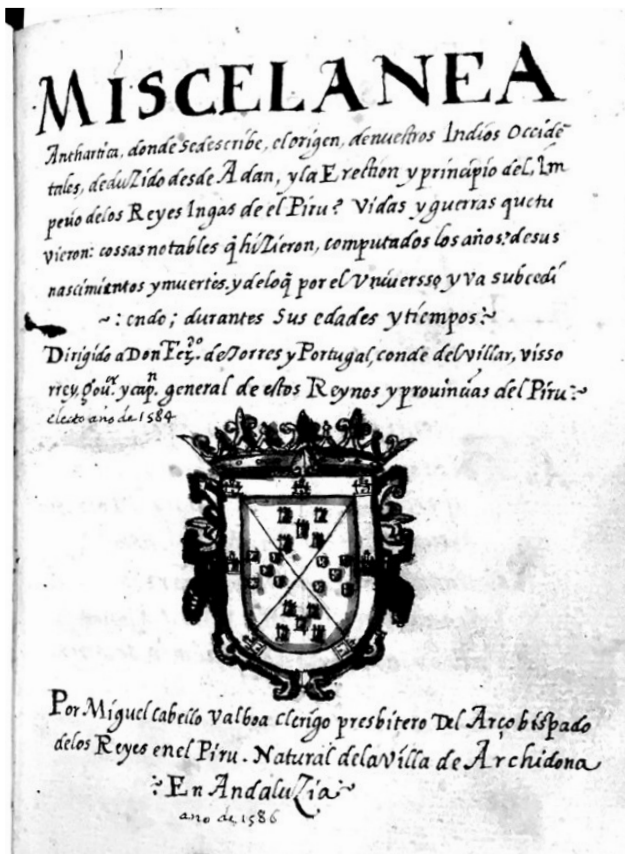 MISCELANEA
Anthartica, donde se describe, el origen, de nuestros Indios Occidē
tales, deduZido desde Adan, y la Erection y principio del, Im
perio de los Reyes Ingas de el Piru? Vidas y guerras que tu
vieron: cossas notables q̃ hiZieron, computados los años? de sus
nascimientos y muertes. y de loq̃ por el Vniuersso y va subcedi
~: endo; durantes Sus edades y tiempos:~
Dirigido a Don Fer.do de Torres y Portugal, conde del villar, visso
rrey, gou.or y cap.n general de estos Reynos y prouinçias del Piru:~
electo año de 1584
Por Miguel Cabello Valboa Clerigo presbitero Del Arçobispado
delos Reyes en el Piru. Natural dela Villa de Archidona
:~ En AndaluZia:~
año de 1586